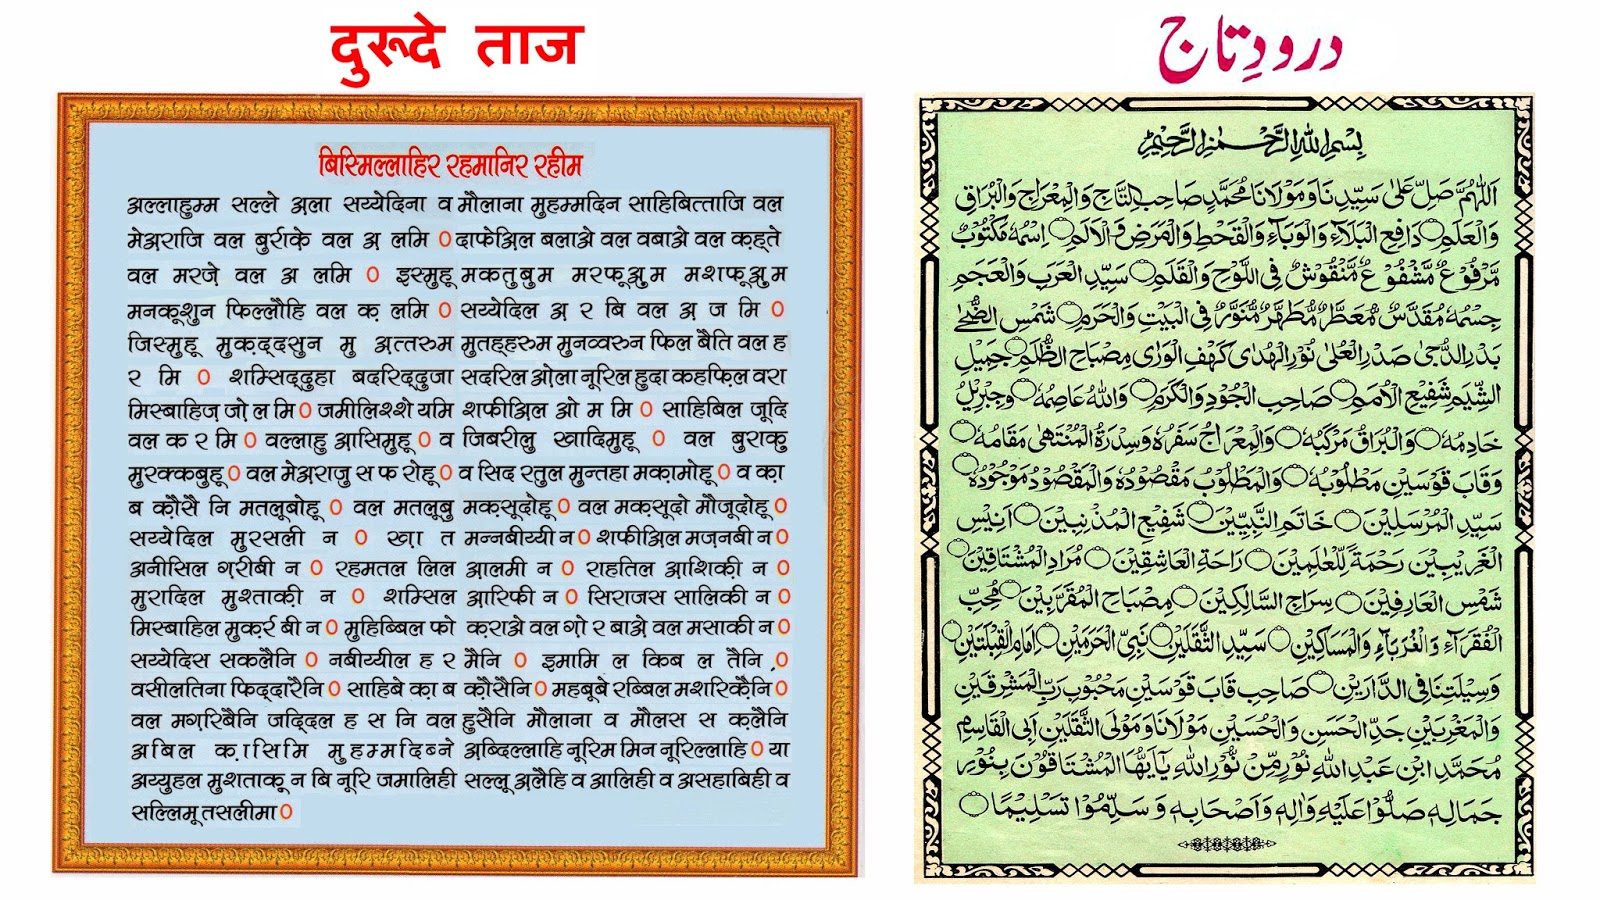 दुरूदे ताज
बिस्मिल्लाहिर रहमानिर रहीम
अल्लाहुम्म सल्ले अ़ला सय्येदिना व मौलाना मुहम्मदिन साहिबित्ताजि वल
मेअ़राजि वल बुर्राके़ वल अ़ लमि 0 दाफेअ़िल बलाअे वल वबाअे वल क़ह्ते
वल मरज़े वल अ लमि 0 इस्मुहू मकतुबुम मरफ़ूअुम मशफ़ूअुम
मनकूशुन फिल्लौहि वल क़ लमि 0 सय्येदिल अ़ र बि वल अ़ ज मि 0
जिस्मुहू मुक़द्दसुन मु अत्तरुम मुतह्हरुम मुनव्वरुन फिल बैति वल ह
र मि 0 शम्सिद्दुहा बदरिद्दुजा सदरिल ओ़ला नूरिल हुदा कहफ़िल वरा
मिस्बाहिज़ जो़ ल मि 0 जमीलिश्शे यमि शफीअ़िल ओ म मि 0 साहिबिल जूदि
वल क र मि 0 वल्लाहु आसिमुहू 0 व जिबरीलु खादिमुहू 0 वल बुराकु
मुरक्कबुहू 0 वल मेअ़राजु स फ रोहू 0 व सिद रतुल मुन्तहा मक़ामोहू 0 व क़ा
ब क़ौसै नि मतलूबोहू 0 वल मतलूबु मक़सूदोहू 0 वल मकसूदो मौजूदोहू 0
सय्येदिल मुरसली न 0 ख़ा त मन्नबीय्यी न 0 शफीअ़िल मज़नबी न 0
अनीसिल ग़रीबी न 0 रहमतल लिल आ़लमी न 0 राहतिल आ़शिक़ी न 0
मुरादिल मुश्ताक़ी न 0 शम्सिल आ़रिफी न 0 सिराजस सालिकी न 0
मिस्बाहिल मुक़र्र बी न 0 मुहिब्बिल फो क़राअे वल गो़ र बाअे वल मसाकी न 0
सय्येदिस सकलैनि 0 नबीय्यील ह र मैनि 0 इमामि ल किब ल तैनि 0
वसीलतिना फिद्दारैनि 0 साहिबे क़ा ब क़ौसैनि 0 महबूबे रब्बिल मशरिकै़नि 0
वल मग़रिबैनि जद्दिल ह स नि वल हुसैनि मौलाना व मौलस स क़लैनि
अबिल क़ासिमि मुहम्मदिब्ने अ़ब्दिल्लाहि नूरिम मिन नूरिल्लाहि 0 या
अय्युहल मुशताकू़ न बि नूरि जमालिही सल्लू अ़लैहि व आलिही व असहाबिही व
सल्लिमू तसलीमा 0
درودِ تاج
بِسْمِ اللهِ الرَّحْمٰنِ الرَّحِيْمِ
اَللّٰهُمَّ صَلِّ عَلٰى سَيِّدِنَا وَمَوْلَانَا مُحَمَّدٍ صَاحِبِ التَّاجِ وَالْمِعْرَاجِ وَالْبُرَاقِ
وَالْعَلَمِ۝ دَافِعِ الْبَلَآءِ وَالْوَبَآءِ وَالْقَحْطِ وَالْمَرَضِ وَالْاَلَمِ۝ اِسْمُهٗ مَكْتُوْبٌ
مَّرْفُوْعٌ مَّشْفُوْعٌ مَّنْقُوْشٌ فِى اللَّوْحِ وَالْقَلَمِ۝ سَيِّدِ الْعَرَبِ وَالْعَجَمِ
جِسْمُهٗ مُقَدَّسٌ مُّعَطَّرٌ مُّطَهَّرٌ مُّنَوَّرٌ فِى الْبَيْتِ وَالْحَرَمِ۝ شَمْسِ الضُّحٰى
بَدْرِ الدُّجٰى صَدْرِ الْعُلٰى نُوْرِ الْهُدٰى كَهْفِ الْوَرٰى مِصْبَاحِ الظُّلَمِ۝ جَمِيْلِ
الشِّيَمِ شَفِيْعِ الْاُمَمِ۝ صَاحِبِ الْجُوْدِ وَالْكَرَمِ۝ وَاللهُ عَاصِمُهٗ۝ وَجِبْرِيْلُ
خَادِمُهٗ۝ وَالْبُرَاقُ مَرْكَبُهٗ۝ وَالْمِعْرَاجُ سَفَرُهٗ وَسِدْرَةُ الْمُنْتَهٰى مَقَامُهٗ۝
وَقَابَ قَوْسَيْنِ مَطْلُوْبُهٗ۝ وَالْمَطْلُوْبُ مَقْصُوْدُهٗ وَالْمَقْصُوْدُ مَوْجُوْدُهٗ۝
سَيِّدِ الْمُرْسَلِيْنَ۝ خَاتَمِ النَّبِيّيْنَ۝ شَفِيْعِ الْمُذْنِبِيْنَ۝ اَنِيْسِ
الْغَرِيْبِيْنَ رَحْمَةً لِّلْعٰلَمِيْنَ۝ رَاحَةِ الْعَاشِقِيْنَ۝ مُرَادِ الْمُشْتَاقِيْنَ۝
شَمْسِ الْعَارِفِيْنَ۝ سِرَاجِ السَّالِكِيْنَ۝ مِصْبَاحِ الْمُقَرَّبِيْنَ۝ مُحِبِّ
الْفُقَرَآءِ وَالْغُرَبَآءِ وَالْمَسَاكِيْنِ۝ سَيِّدِ الثَّقَلَيْنِ۝ نَبِىِّ الْحَرَمَيْنِ۝ اِمَامِ الْقِبْلَتَيْنِ۝
وَسِيْلَتِنَا فِى الدَّارَيْنِ۝ صَاحِبِ قَابَ قَوْسَيْنِ مَحْبُوْبِ رَبِّ الْمَشْرِقَيْنِ
وَالْمَغْرِبَيْنِ جَدِّ الْحَسَنِ وَالْحُسَيْنِ مَوْلَانَا وَمَوْلَى الثَّقَلَيْنِ اَبِى الْقَاسِمِ
مُحَمَّدِ ابْنِ عَبْدِ اللهِ نُوْرٍ مِّنْ نُّوْرِ اللهِ يٰۤاَيُّهَا الْمُشْتَاقُوْنَ بِنُوْرِ
جَمَالِهٖ صَلُّوْا عَلَيْهِ وَاٰلِهٖ وَاَصْحَابِهٖ وَسَلِّمُوْا تَسْلِيْمًا۝